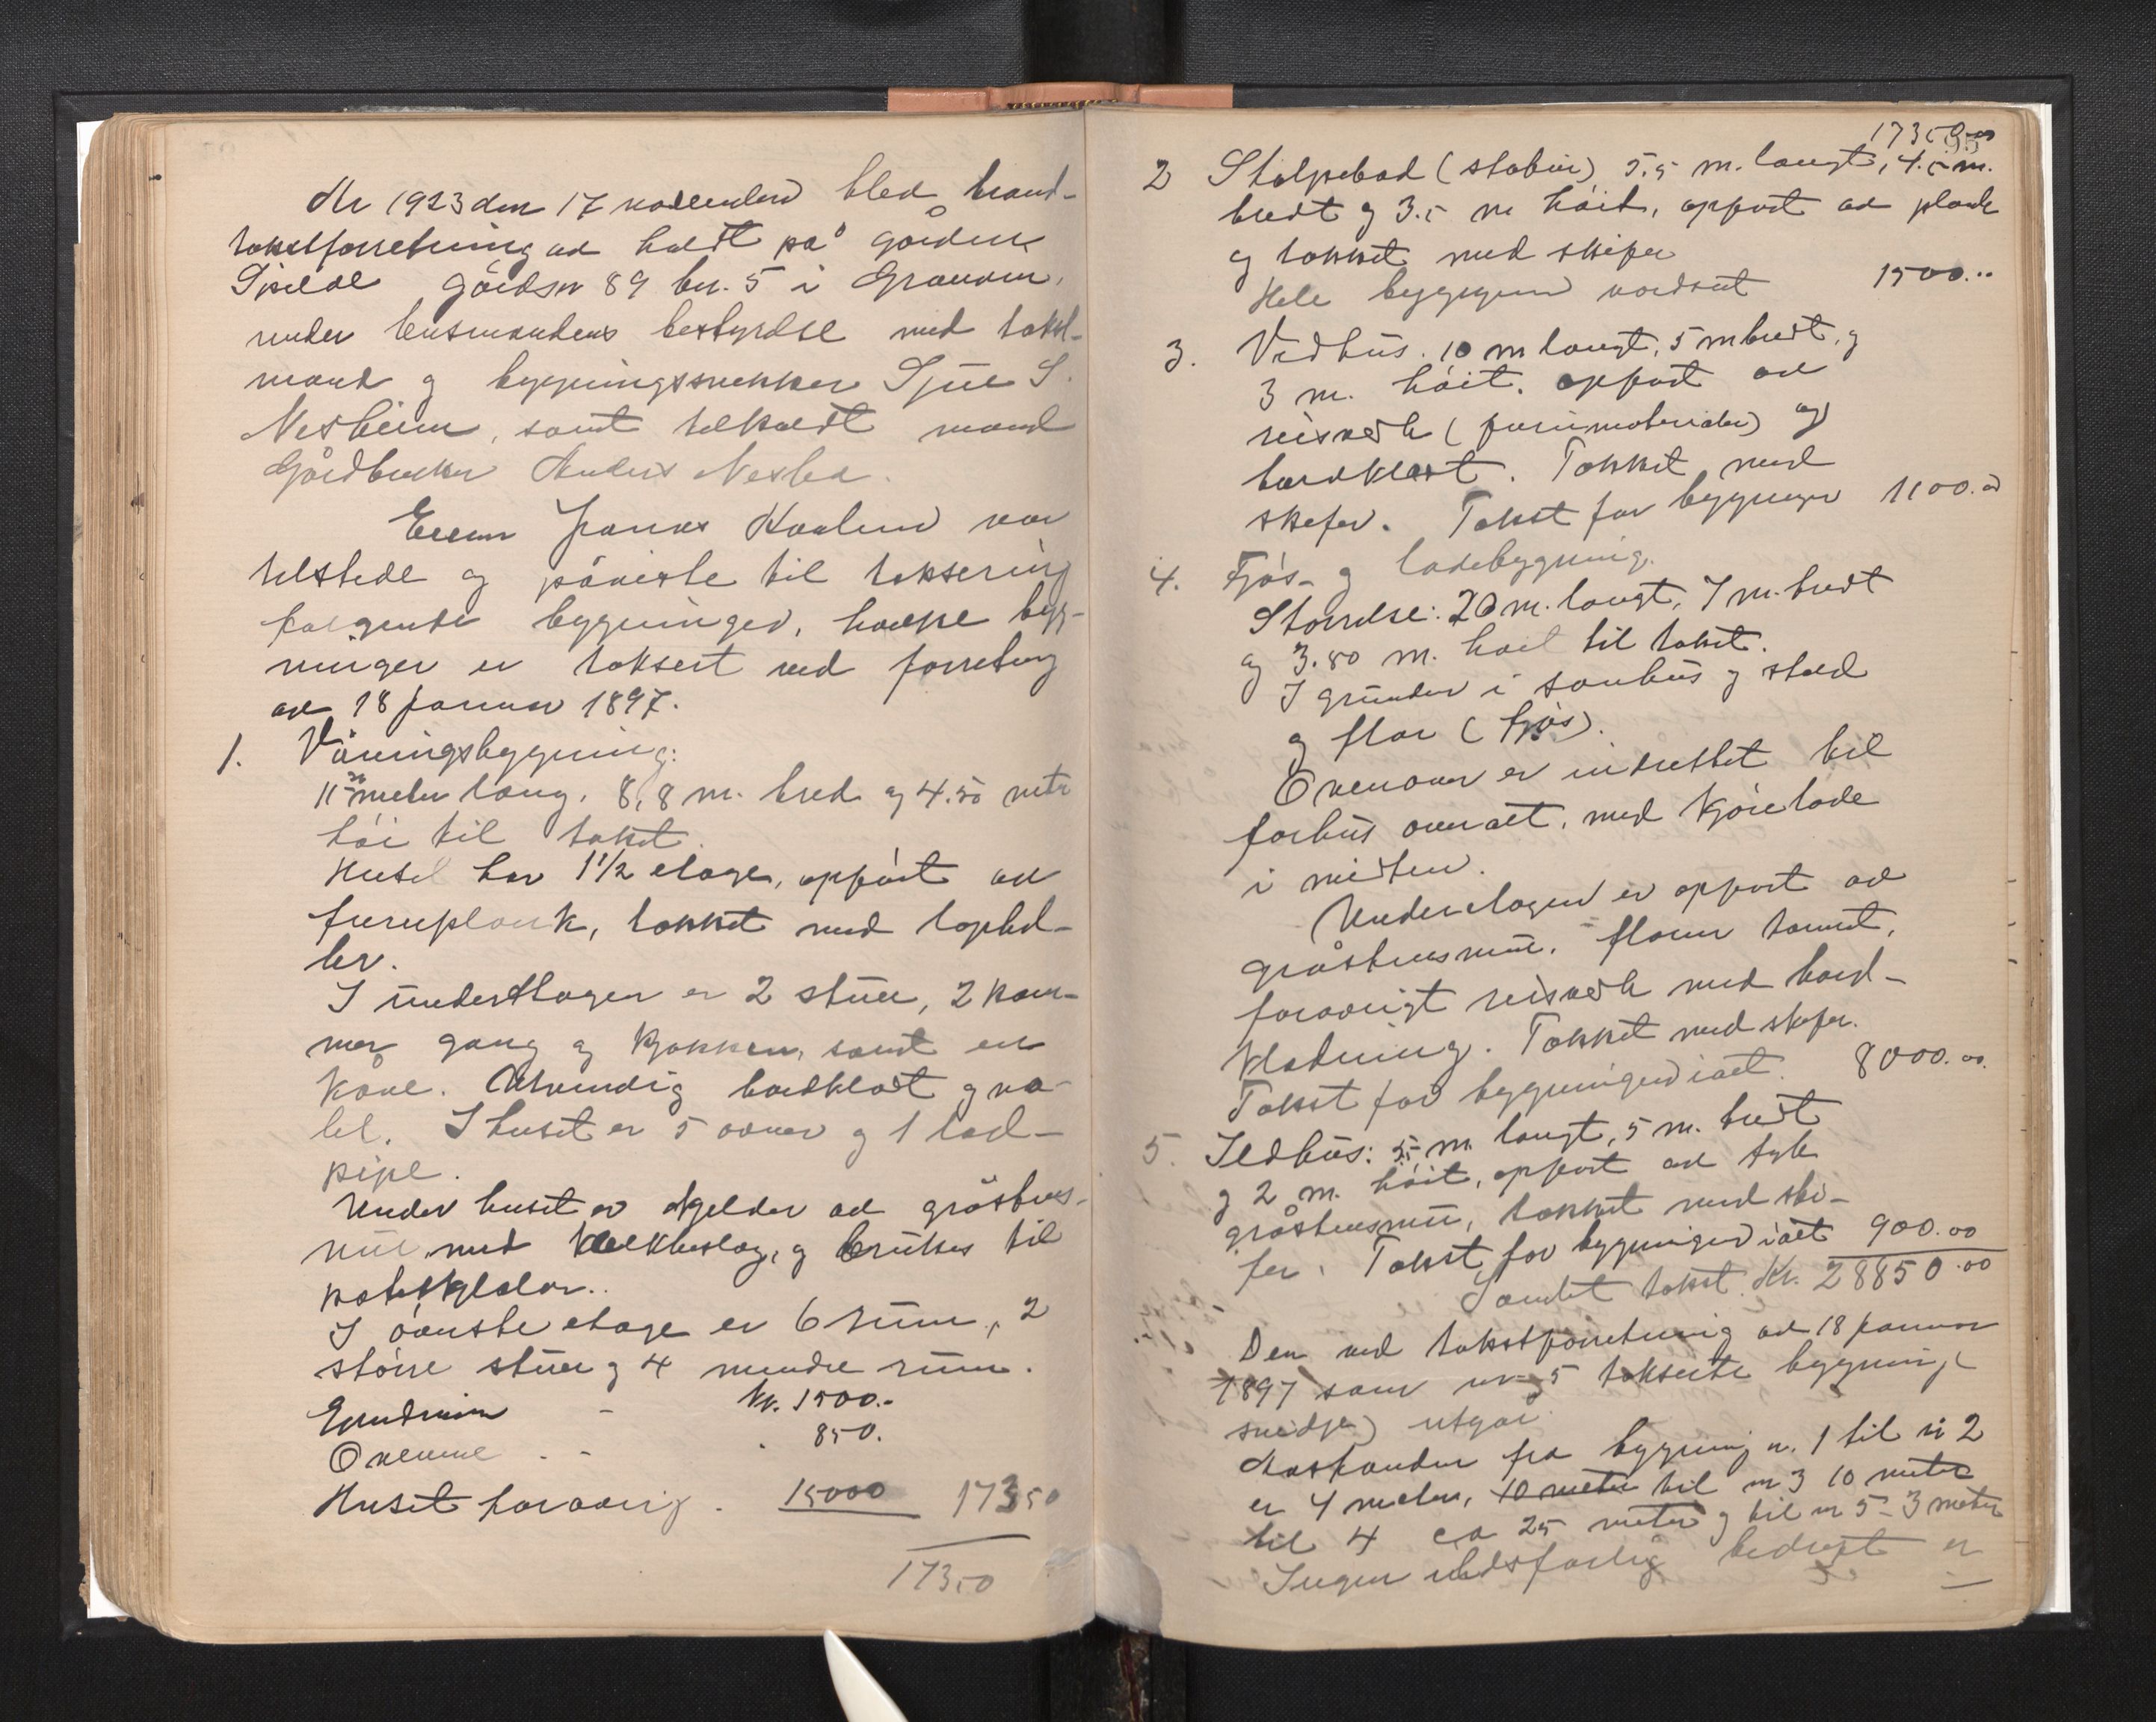 År 1923 den 17 november blev brand-
takstforretning av holdt på gården
gårdsnr 89 br. 5 i Granvin,
under lensmandens bestyrelse med takst-
mand og bygningssnekker Sjur S.
Nesheim, samt tilkaldt mand
Gårdbruker Anders Nesheim.
Eieren var
tilstede og påviste til taksering
følgende bygninger, hvilke byg-
ninger er taksert ved forretning
av 18 januar 1897.
1. Våningsbygning:
11 meter lang, 8,8 m. bred og 4.50 meter
høi til taket.
Huset har 1 1/2 etage, opført av
furuplank, tækket med
I underetagen er 2 stuer, 2 kam-
mer gang og kjøkken, samt en
kove. Utvendig bordklædt og ma-
let. I huset er 5 ovner og 1
pipe.
Under huset er kjelder av gråstens-
mur med kalkbeslag, og brukes til
potetkjelder.
I øverste etage er 6 rum, 2
større stuer og 4 mindre rum.
Grundmuren - kr. 1500.-
Ovnene - - . 850.
Huset forøvrig . 15000 17350
17350
17350.00
95
2 Stolpebod (stabur) 5.5 m. langt, 4.5 m.
bredt og 3.5 m høit, opført av plank
og tækket med skifer
Hele bygningen værdsat 1500...
3. Vedhus. 10 m langt, 5 m bredt, og
3 m. høit, opført av
reisverk (furumaterialer) og
bordklædt. Tækket med
skifer. Takst for bygningen 1100.00
4. Fjøs- og ladebygning.
Størrelse: 20 m. langt, 7 m. bredt
og 3.80 m. høit til taket.
I grunden i sauhus og stald
og flor (fjøs).
Ovenover er indrettet til
forhus overalt, med kjørelade
i midten.
Underetagen er opført av
gråstensmur, floren tømret,
forøvrigt reisverk med bord-
klædning. Tækket med skifer.
Takst for bygningen ialt. 8000.00.
5. Ildhus: 5.5 m. langt, 5 m. bredt
og 2 m. høit, opført av tyk
gråstensmur, tækket med ski-
fer. Takst for bygningen ialt 900.00
Samlet takst Kr. 28850.00
Den ved takstforretning av 18 januar
1897 som nr 5 takserte bygning
smidje) utgår.
Avstanden fra bygning nr. 1 til nr 2
er 4 meter, 10 meter til nr 3 10 meter
til 4 ca 25 meter og til nr 5 - 3 meter
Ingen ildsfarlig bedrift er